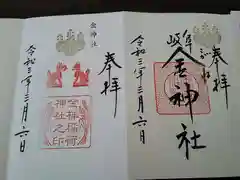 奉拝
岐阜
金神社
令和三年三月六日
奉拝
金神社
金祥稲荷
神社之印
令和三年三月六日